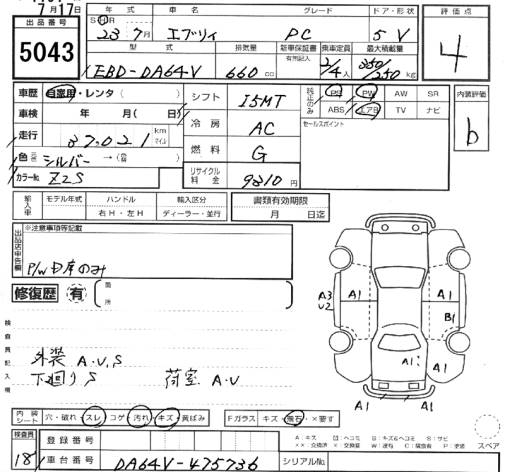 7月17日
出品番号
5043
年式 車名 グレード ドア・形状
S H R
23年 7月 エブリィ PC 5 V
型式 排気量 新車保証書 乗車定員 最大積載量
有無記入
EBD-DA64V 660cc 2/4人 350/250kg
評価点
4
車歴 自家用・レンタ( )
車検 年 月( 日)
走行 37,021 km マイル
色 元色 シルバー →(色 )
カラーNo. Z2S
シフト I5MT
冷房 AC
燃料 G
リサイクル料金 9810円
純正のみ PS PW AW SR
ABS エアB TV ナビ
セールスポイント
内装評価
b
輸入車 モデル年式 ハンドル 輸入区分
右H・左H ディーラー・並行
書類有効期限
月 日迄
出品店申告欄
※注意事項等記載
P/W日庫のみ
修復歴 有 箇所
検査員記入欄
外装 A・U,S
下廻り S 荷室 A・U
A3
U2
A1
A1
B1
A1
A1
A1
A1
内装シート 穴・破れ・スレ・コゲ・汚れ・キズ・黄ばみ
Fガラス キズ・飛石・×要す
A:キズ U:ヘコミ B:キズ&ヘコミ S:サビ
××:交換済 ×:交換要 W:波モ C:腐食有 P:塗装
スペア
検査員
18
登録番号
車台番号 DA64V-475736
シリアルNo.